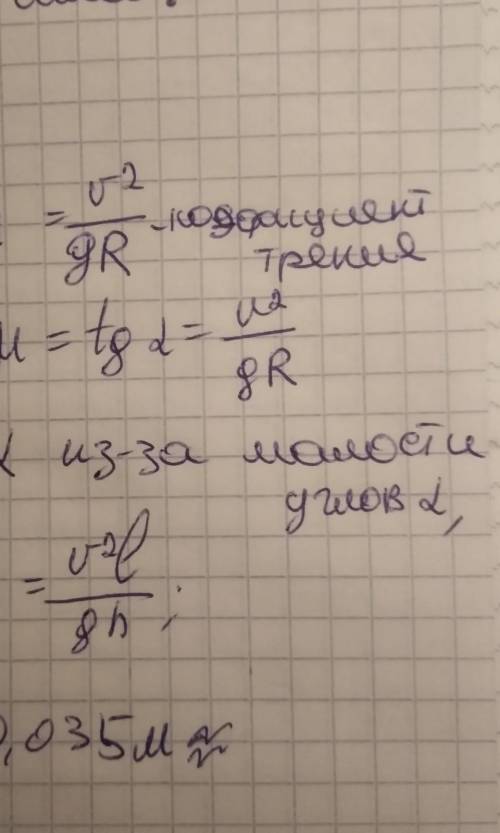 = v²/gR - коэффициент
трения
μ = tg α = v²/gR
из-за малости
углов α,
= v²l/gh ;
0,035м ≈